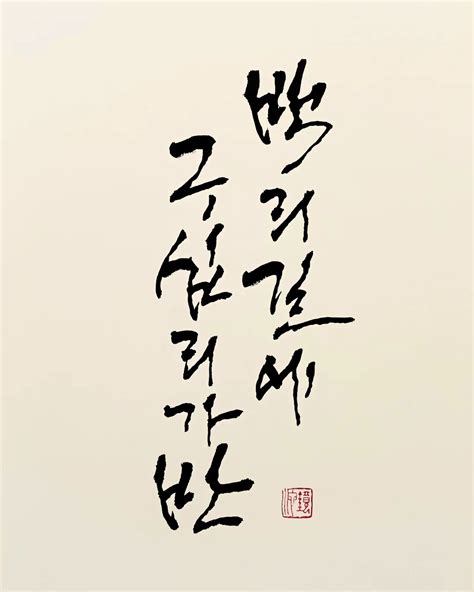 백리길에
구십리가반